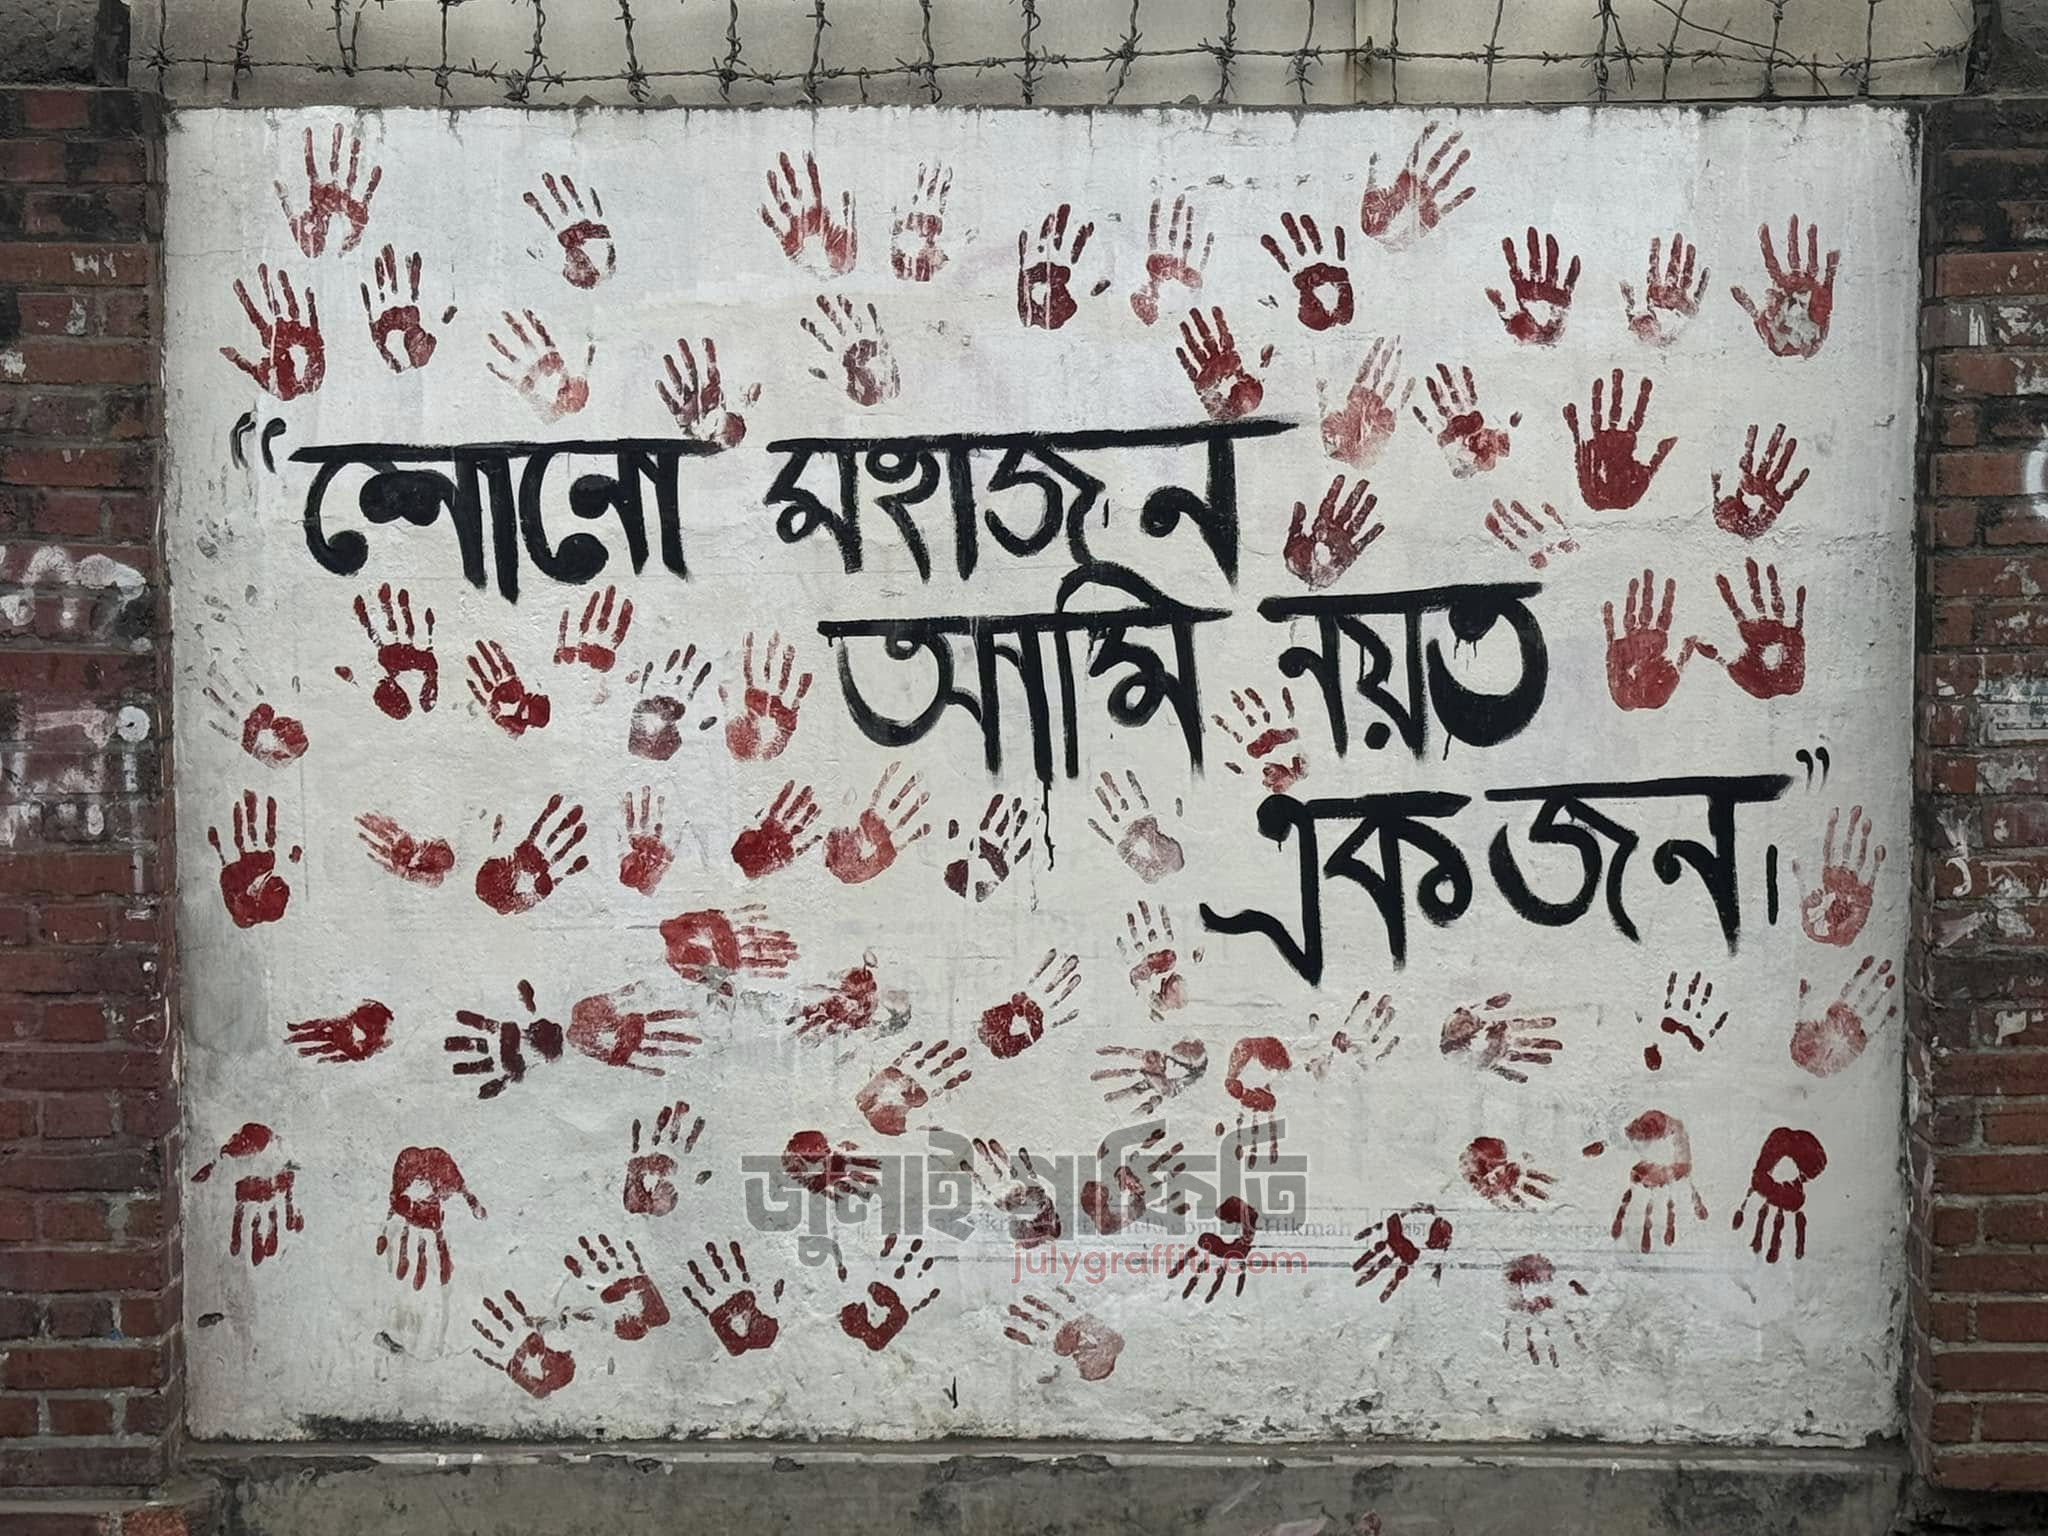 “শোনো মহাজন
আমি নয়ত
একজন।”
জুলাই গ্রাফিতি
julygraffiti.com